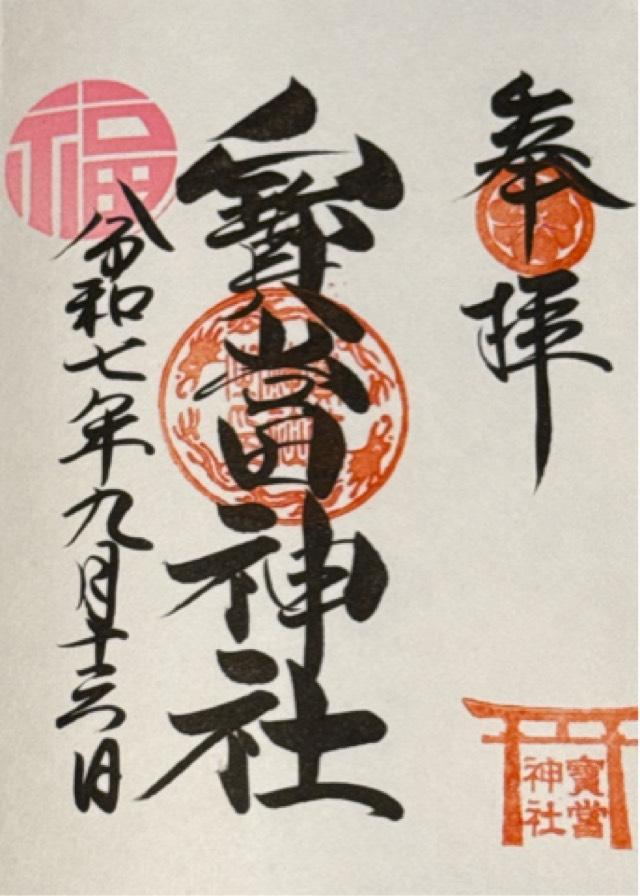 奉拝
寳當神社
令和七年九月十六日
福
寳當
神社